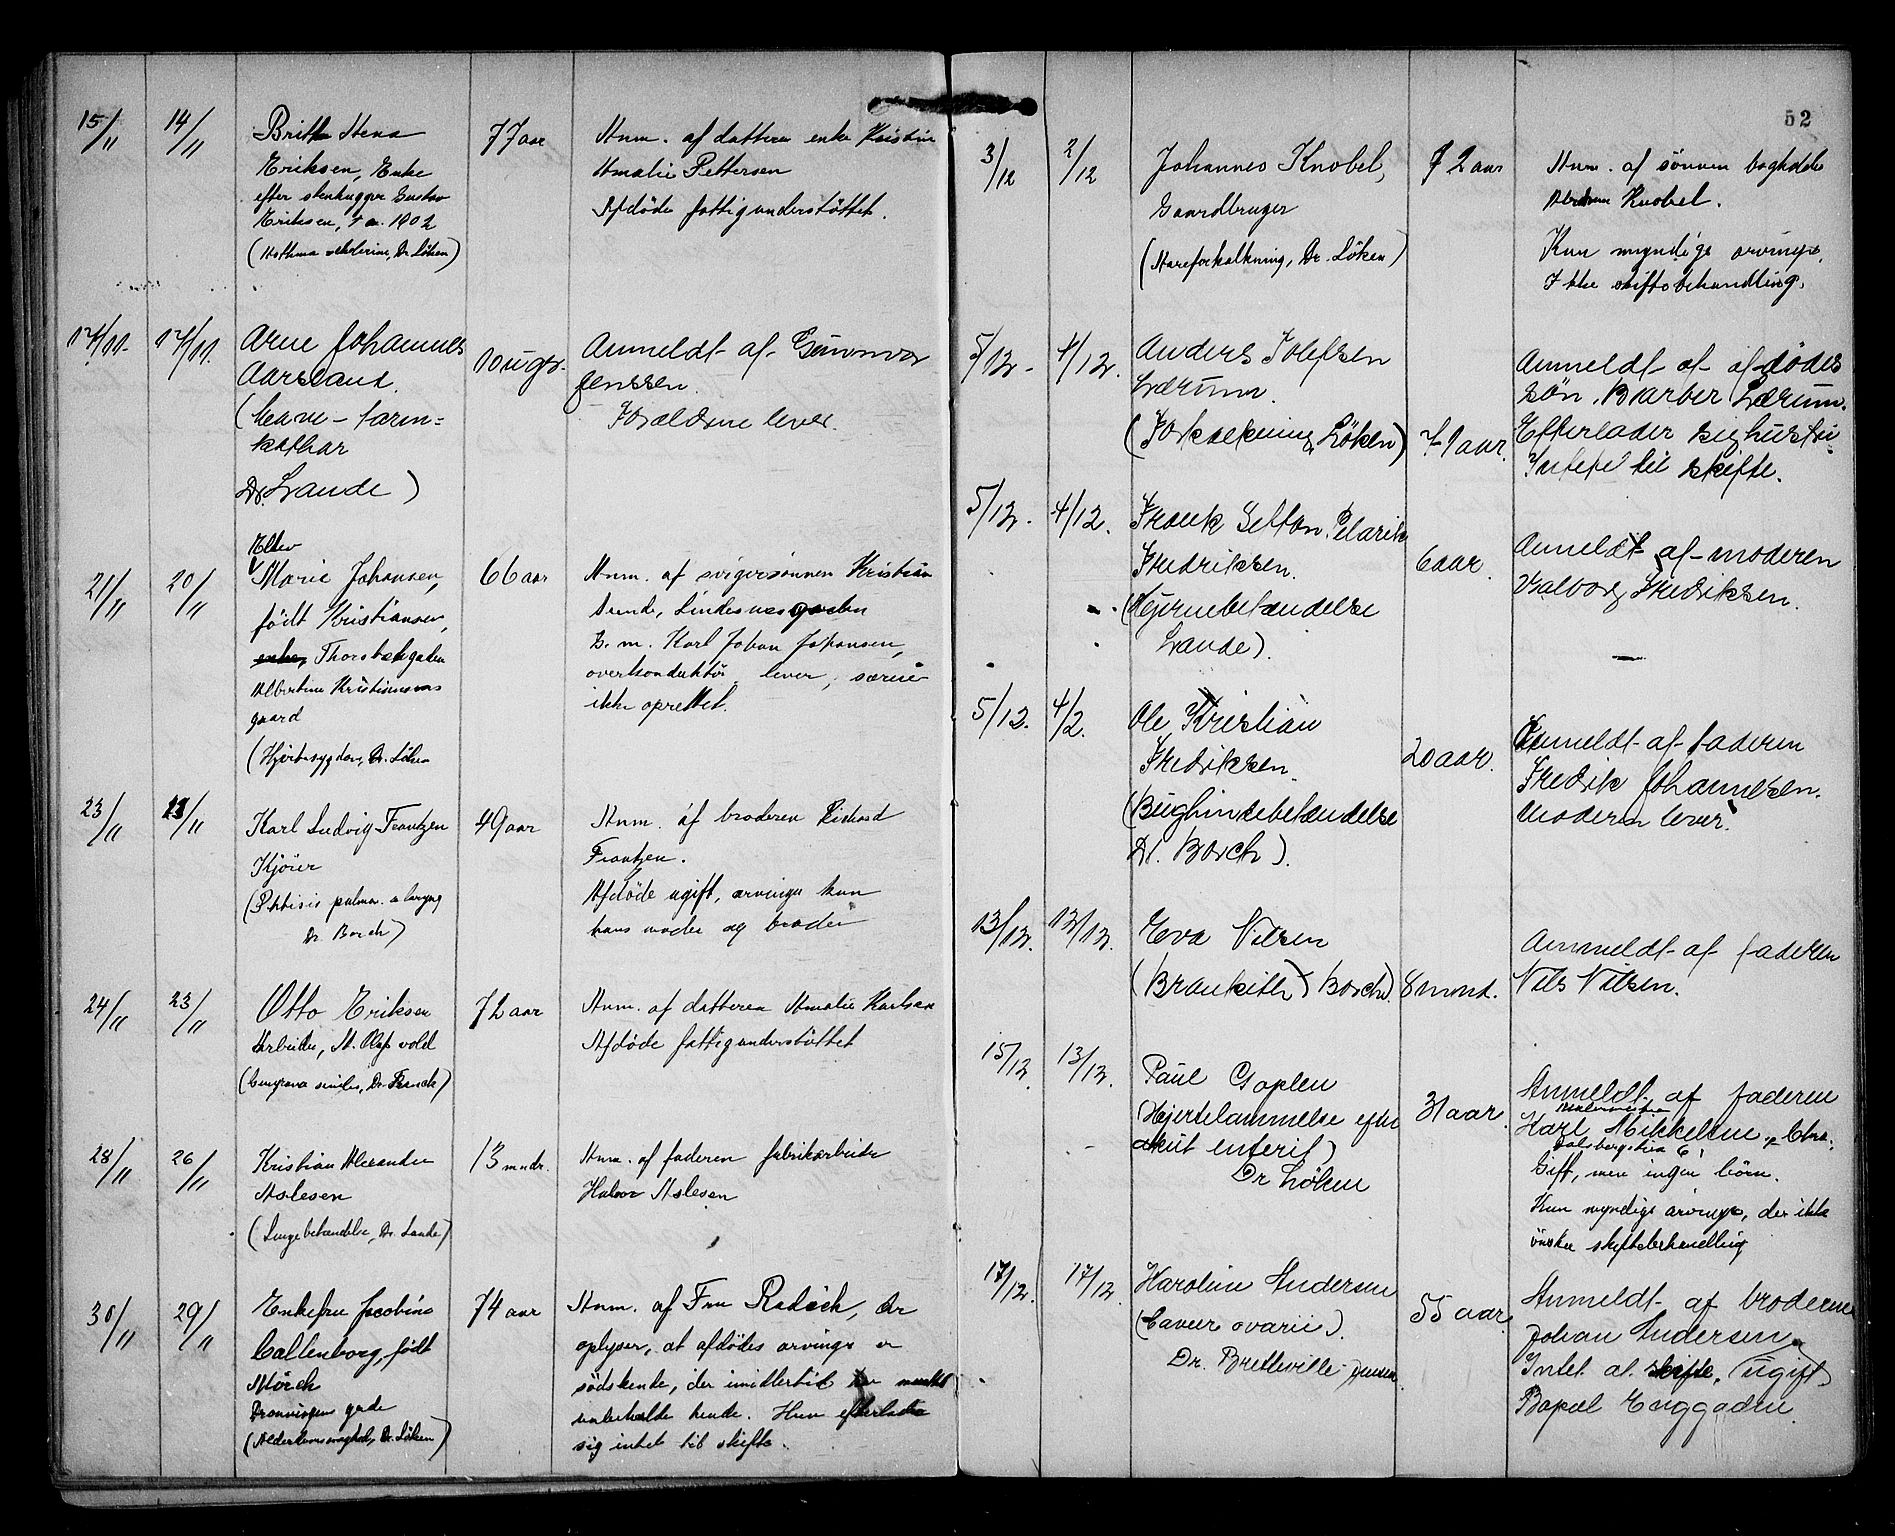 15/11 14/11 Britha Stena 77 aar Anm. af datteren enke Kristine
Eriksen, Enke Amalie Pettersen
efter stenhugger Gustav Afdöde fattigunderstöttet.
Eriksen, † a. 1902
(Asthma Dr. Löken)
17/11. 17/11. Arne Johannes 10 uger. Anmeldt af Gunvor
Aarsland. Jenssen.
(Mave-tarm= Forældrene lever.
kathar
Dr. Lande)
Ellev
21/11 20/11 Marie Johansen, 66 aar Anm. af svigersönnen Kristian
födt Kristiansen, Lunde, Lindesnesgaarden
enke, Thorsbækgaden E. m. Karl Johan Johansen,
Albertine Kristiansens overkonduktör lever, særeie
gaard ikke oprettet.
(Hjertesygdom, Dr. Löken
23/11 23/11 Karl Ludvig Frantzen 49 aar Anm. af broderen Rikard
Kjöier Frantzen.
(Phtisis pulmon. & laryng Afdöde ugift, arvinger kun
Dr. Borch) hans moder og broder
24/11 23/11 Otto Eriksen 72 aar Anm. af datteren Amalie Karlsen
Arbeider, St. Olafs vold Afdöde fattigunderstöttet
(senilis, Dr. Finck)
28/11 26/11 Kristian Alexander 13 mndr. Anm. af faderen fabrikarbeider
Aslesen Halvor Aslesen
(Lungebetændelse, Dr. Lande)
30/11 29/11 Enkefru Jacobine 74 aar Anm. af Fru Radich, der
Callenborg, födt oplyser, at afdödes arvinger er
Mörch södskende, der imidlertid
Dronningens gade hende. Hun efterlader
(Alderdomssvaghed, Dr. Löken) sig intet til skifte.
52
3/12 2/12 Johannes Knobel, 72 aar Anm. af sönnen baghandler
Gaardbruger Abraham Knobel.
(Aareforkalkning, Dr. Löken) Kun myndige arvinger,
Ikke skiftebehandling.
5/12. 4/12. Anders Tolefsen Anmeldt af afdödes
Lærum. sön. Barber Lærum.
(Forkalkning, Löken) 71 aar. Efterlader sig hustru
Intet til skifte.
5/12. 4/12. Frank Selton Fredriksen. 6 aar. Anmeldt af moderen
(Hjernebetændelse Valborg Fredriksen.
Lande).
5/12. 4/2. Ole Kristian Anmeldt af faderen
Fredriksen. 20 aar. Fredrik Johannesen.
(Bughindebetændelse Moderen lever.
Dr. Borch).
13/12. 12/12. Eva Nilsen Anmeldt af faderen
(Bronkitt) Borch). 8 mnd. Nils Nilsen.
15/12. 13/12. Paul Goplen Anmeldt af faderen
(Hjertelammelse efter 31 aar. Karl Mikkelsen, Chra.
akut enterit) Gift, men ingen börn.
Dr Löken Kun myndige arvinger, der ikke
önsker skiftebehandling
17/12. 17/12. Karoline Andersen 55 aar. Anmeldt af broderen
(Cancer ovarii). Johan Andersen
Dr. Bretteville-Jensen. Intet at skifte, (ugift)
Bopæl Enggaden.